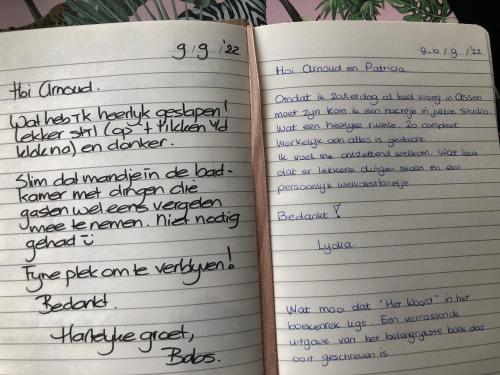 9/9/'22
Hoi Arnoud.
Wat heb ik heerlijk geslapen!
Lekker stil (op 't tikken v/d
klok na) en donker.
Slim dat mandje in de bad-
kamer met dingen die
gasten wel eens vergeten
mee te nemen. Niet nodig
gehad
Fijne plek om te verblijven!
Bedankt.
Hartelijke groet,
Babs.
9-10/9/'22
Hoi Arnoud en Patricia.
Omdat ik zaterdag al heel vroeg in Assen
moet zijn kom ik een nachtje in jullie studio.
Wat een heerlijke ruimte. Zo compleet
Werkelijk aan alles is gedacht.
Ik voel me ontzettend welkom. Wat leuk
dat er lekkere dingen staan en een
persoonlijk welkomstbriefje.
Bedankt!
Lydia
Wat mooi dat 'Het Woord' in het
boekenrek ligt. Een verrassende
uitgave van het belangrijkste boek dat
ooit geschreven is.